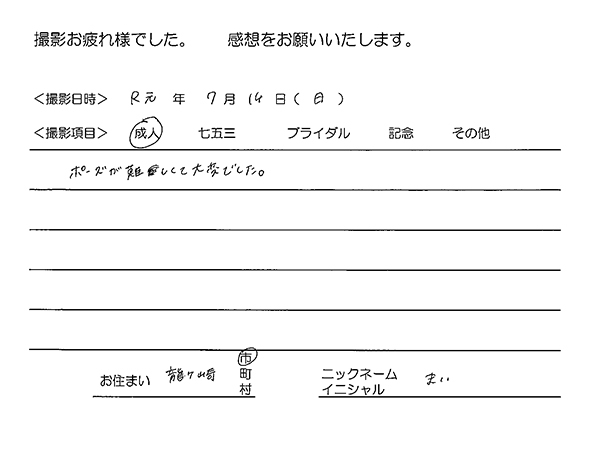 撮影お疲れ様でした。 感想をお願いいたします。
<撮影日時> R元 年 7月 14日(日)
<撮影項目> 成人 七五三 ブライダル 記念 その他
ポーズが難しくて大変でした。
お住まい 龍ケ崎 市 町 村
ニックネーム イニシャル まい